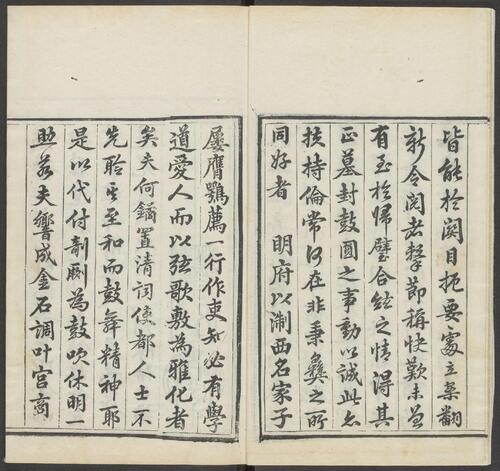 皆能於闕目扼要處立案翻
新令閱者擊節稱快歎未曾
有至於歸璧合鈿之情得其
正墓封鼓圓之事動以誠此亦
扶持倫常何在非秉彝之所
同好者 明府以浙西名家子
屢膺鶚薦一行作吏知必有學
道愛人而以弦歌敷為雅化者
矣夫何鐍置清詞使都人士不
先聆其至和而鼓舞精神耶
是以代付剞劂為鼓吹休明一
助若夫響成金石調叶宮商